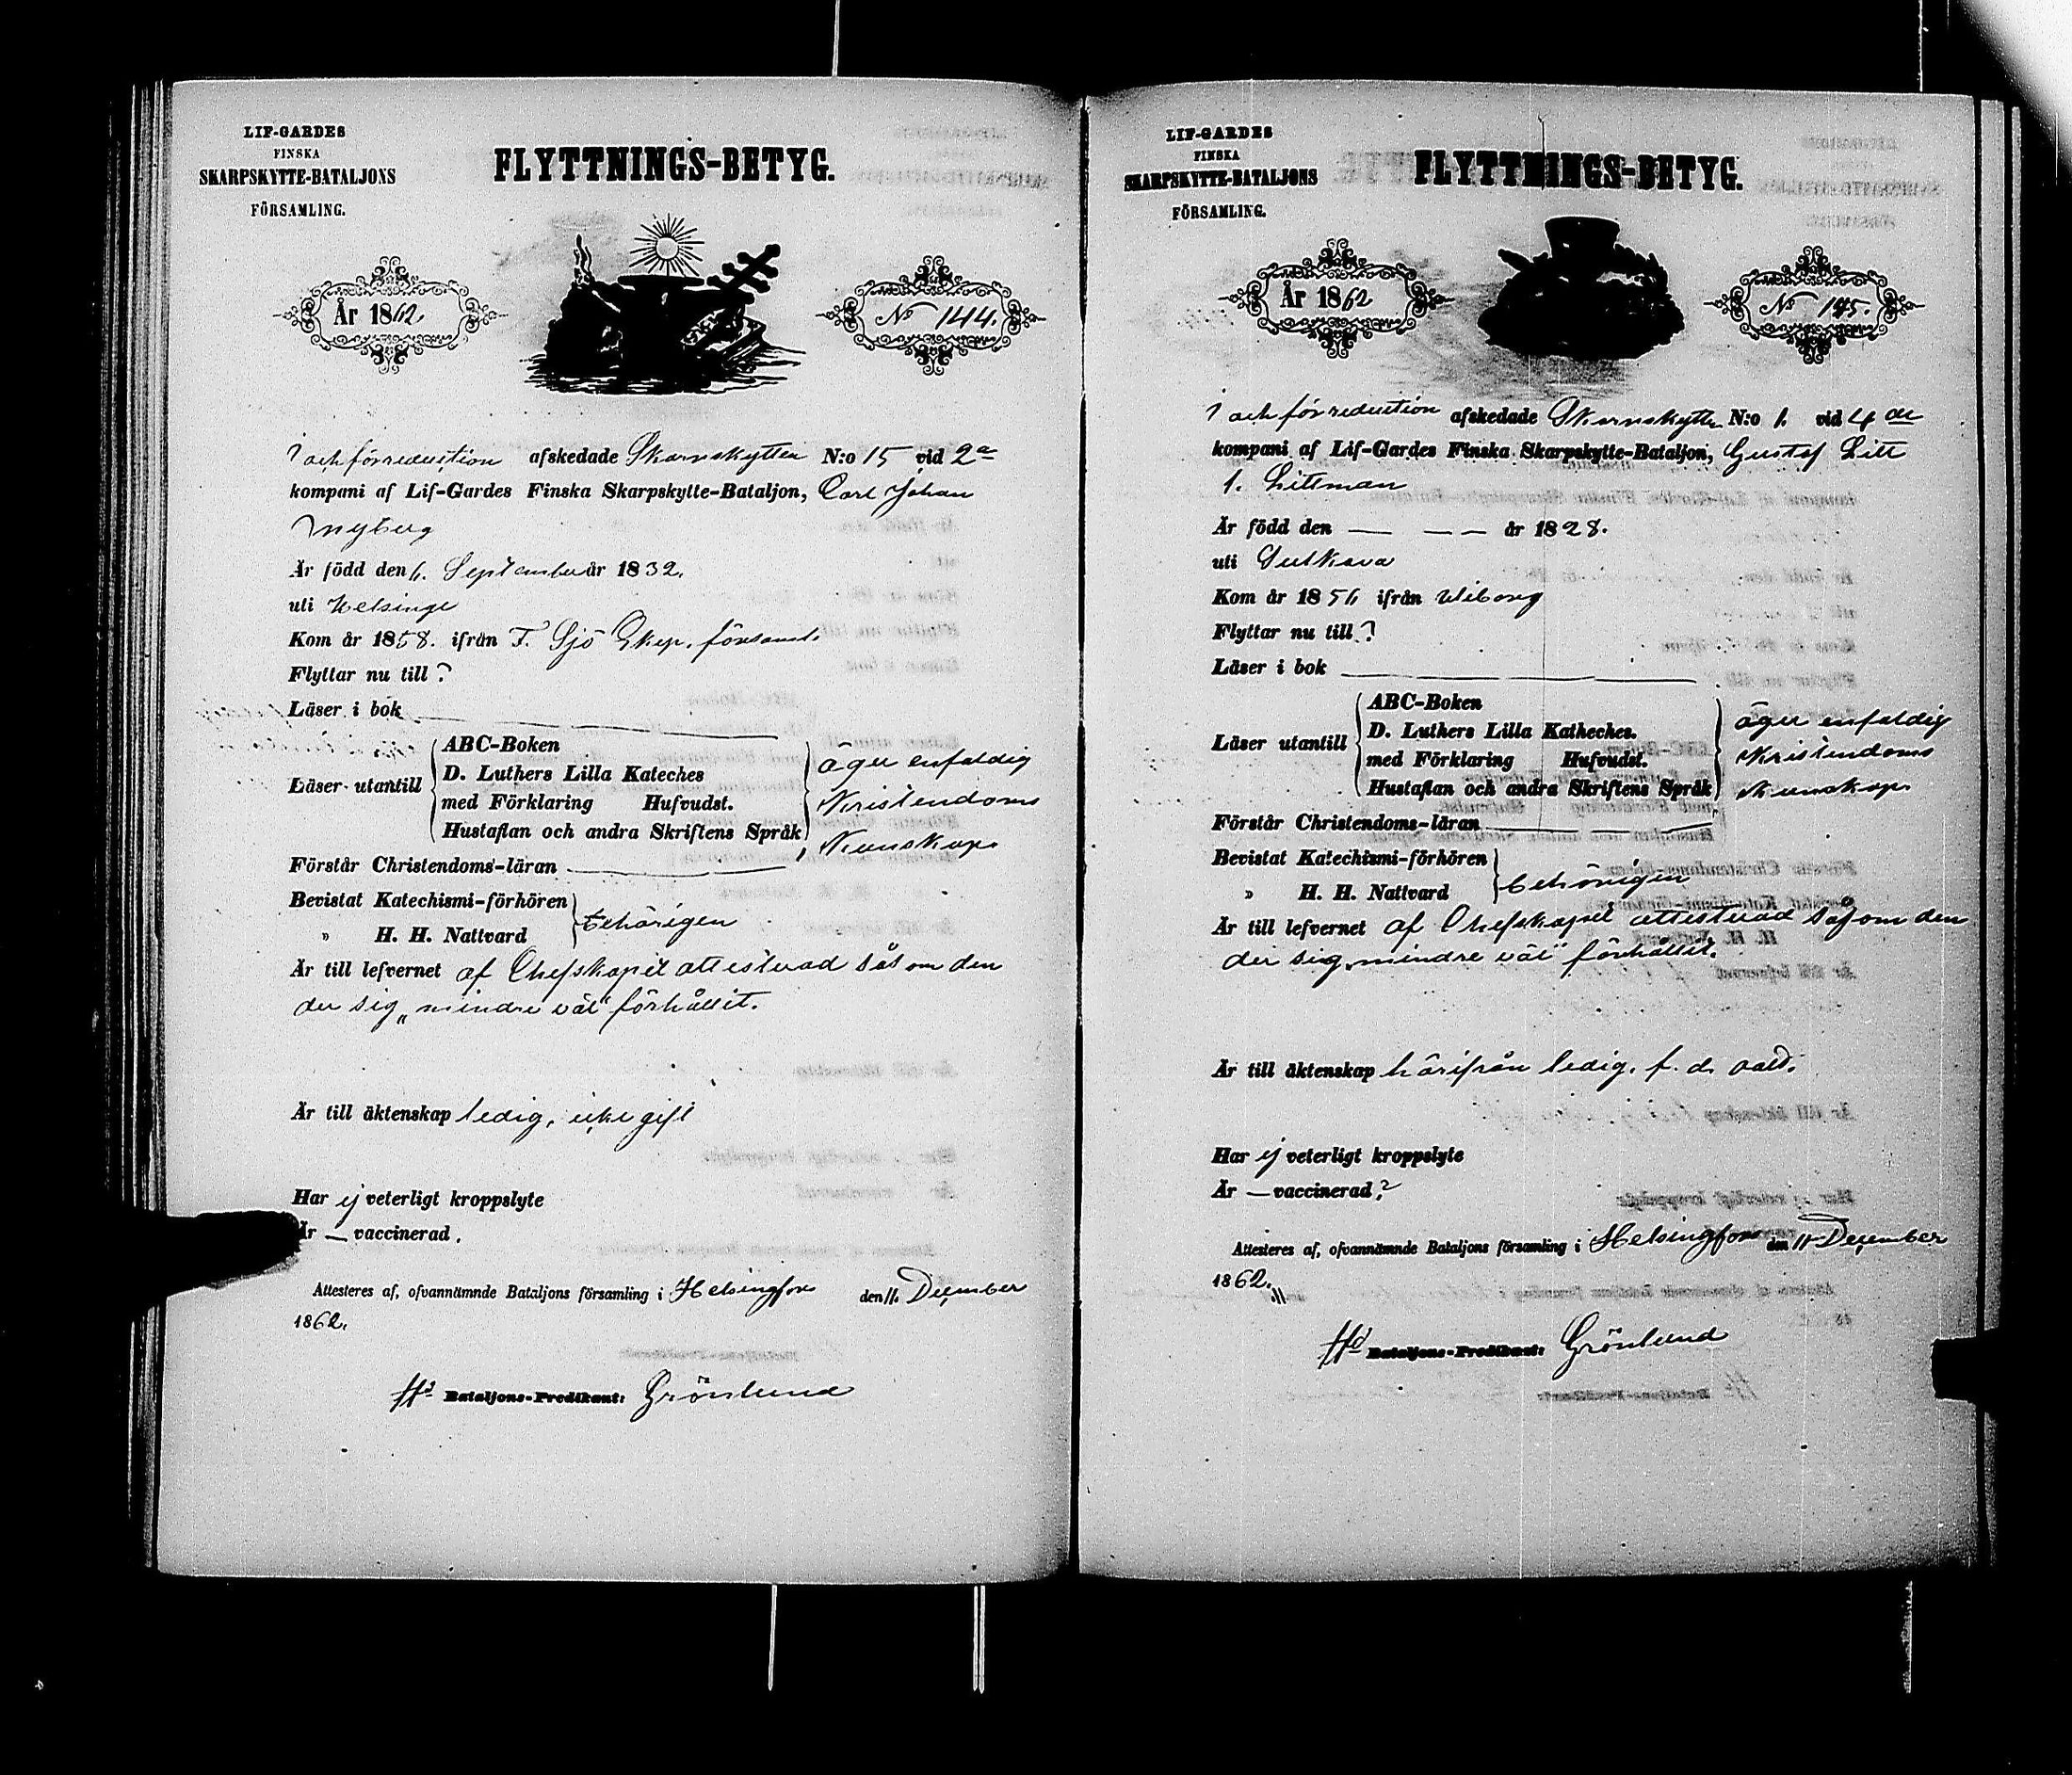 LIF-GARDES
FINSKA
SKARPSKYTTE-BATALJONS
FÖRSAMLING.
FLYTTNINGS-BETYG.
År 1862.
No 144.
I och för reduction afskedade Skarpskytten N:o 15 vid 2a
kompani af Lif-Gardes Finska Skarpskytte-Bataljon, Carl Johan
Nyberg
Är född den 6. September år 1832.
uti Helsinge
Kom år 1858. ifrån F. Sjö Ekip. församl.
Flyttar nu till ?
Läser i bok
Läser utantill
ABC-Boken
D. Luthers Lilla Kateches
med Förklaring Hufvudst.
Hustaflan och andra Skriftens Språk
äger enfaldig
Kristendoms
Kunskap.
Förstår Christendoms-läran
Bevistat Katechismi-förhören
" H. H. Nattvard
behörigen
Är till lefvernet af Chefskapet attesterad såsom den
der sig „mindre väl" förhållit.
Är till äktenskap ledig, icke gift
Har ej veterligt kroppslyte
Är — vaccinerad.
Attesteres af, ofvannämnde Bataljons församling i Helsingfors den 11. December
1862.
Bataljons-Predikant: Grönlund
LIF-GARDES
FINSKA
SKARPSKYTTE-BATALJONS
FÖRSAMLING.
FLYTTNINGS-BETYG.
År 1862
No 145.
I och för reduction afskedade Skarpskytten N:o 1. vid 4de
kompani af Lif-Gardes Finska Skarpskytte-Bataljon, Gustaf Litt
l. Littman
Är född den — — — år 1828.
uti Sulkava
Kom år 1856 ifrån Wiborg
Flyttar nu till ?
Läser i bok
Läser utantill
ABC-Boken
D. Luthers Lilla Katheches.
med Förklaring Hufvudst.
Hustaflan och andra Skriftens Språk
äger enfaldig
Kristendoms
Kunskap.
Förstår Christendoms-läran
Bevistat Katechismi-förhören
" H. H. Nattvard
behörigen
Är till lefvernet af Chefskapet attesterad såsom den
der sig „mindre väl" förhållit.
Är till äktenskap härifrån ledig. f. d. sold.
Har ej veterligt kroppslyte
Är — vaccinerad.?
Attesteres af, ofvannämnde Bataljons församling i Helsingfors den 11 December
1862.
Bataljons-Predikant: Grönlund